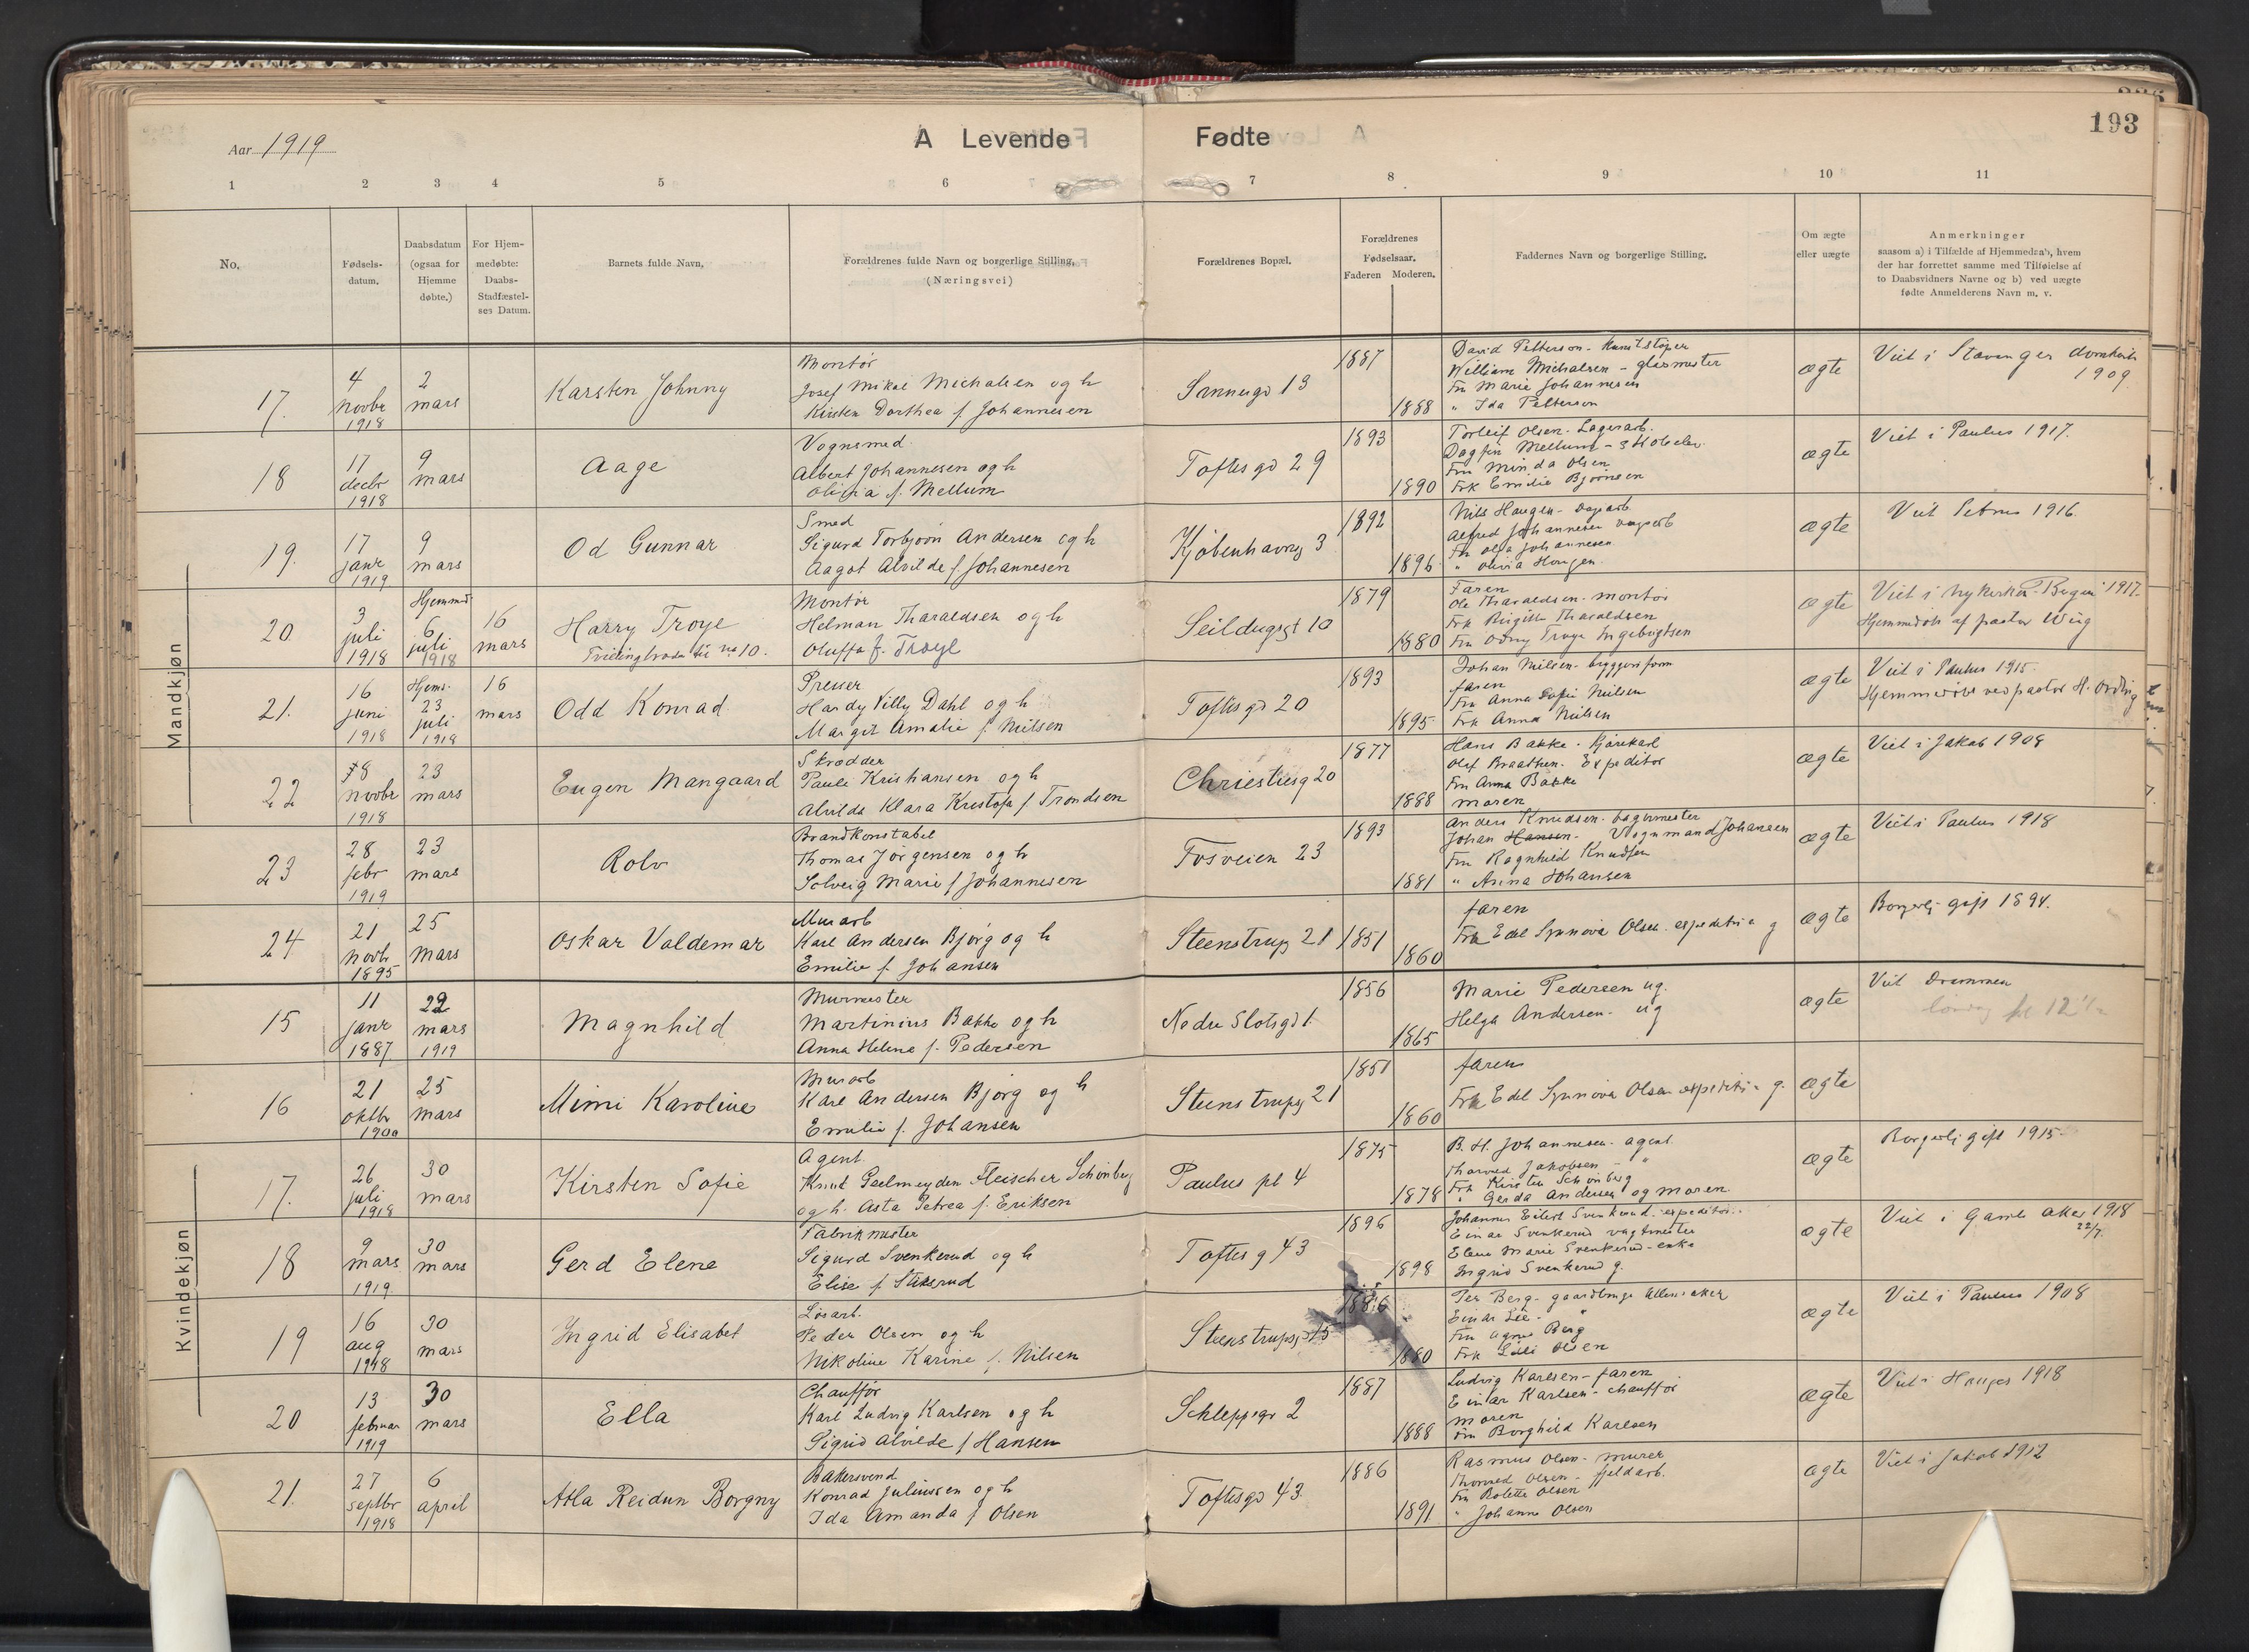 193
Aar 1919
A Levende Fødte
1 2 3 4 5 6 7 8 9 10 11
No.
Fødsels-
datum.
Daabsdatum
(ogsaa for
Hjemme
døbte.)
For Hjem-
medøbte:
Daabs-
Stadfæstel-
ses Datum.
Barnets fulde Navn.
Forældrenes fulde Navn og borgerlige Stilling.
(Næringsvei)
Forældrenes Bopæl.
Forældrenes
Fødselsaar.
Faderen Moderen.
Faddernes Navn og borgerlige Stilling.
Om ægte
eller uægte
Anmerkninger
saasom a) i Tilfælde af Hjemmedaab, hvem
der har forrettet samme med Tilføielse af
to Daabsvidners Navne og b) ved uægte
fødte Anmelderens Navn m. v.
Mandkjøn
17.
4
novbr
1918
2
mars
Karsten Johnny
Montør
Josef Mikal Michalsen og h
Kirsten Dorthea f. Johannesen
Sannergd 13
1887
1888
David Petterson - Kunststøper
William Michalsen - glasmester
Fru Marie Johannesen
" Ida Petterson
ægte
Viet i Stavanger domkirke
1909
18
17
decbr
1918
9
mars
Aage
Vognsmed.
Albert Johannesen og h
Olivia f. Mellum
Toftesgd 29
1893
1890
Torleif Olsen - Lagerarb.
Dagfin Mellum -
Fru Minda Olsen
Frk Emilie Bjørnsen
ægte
Viet i Paulus 1917.
19.
17
janr
1919
9
mars
Od Gunnar
Smed
Sigurd Torbjørn Andersen og h
Aagot Alvilde f. Johannesen
Kjøbenhavng 3
1892
1896
Nils Haugen - Dagarb
Alfred Johannesen dagarb
Fru Olga Johannesen
" Olivia Haugen.
ægte
Viet Petrus 1916.
20
3
juli
1918
Hjemmd
6
juli
1918
16
mars
Harry Troye
Tvillingbroder til no 10.
Montør
Helman Tharaldsen og h
Oluffa f. Troye
Seildugsgt 10
1879
1880
Faren
Ole Tharaldsen - montør
Frk Birgitte Tharaldsen
Fru Odny Troye Ingebrigtsen
ægte
Viet i Nykirken - Bergen 1917.
Hjemmedøbt af pastor Wiig
21.
16
juni
1918
Hjems.
23
juli
1918
16
mars
Odd Konrad
Presser
Hardy Villy Dahl og h
Margit Amalie f. Nilsen
Toftesgd 20
1893
1895
Johan Nilsen - byggerform
faren
Fru Anna Sofie Nilsen
Frk Anna Nilsen
ægte
Viet i Paulus 1915.
Hjemmedøbt ved pastor H. Ording
22
18
novbr
1918
23
mars
Eugen Mangaard
Skrædder
Pauli Kristiansen og h
Alvilda Klara Kristofa f. Trondsen
Christiesg 20
1877
1888
Hans Bakke - Kjørekarl
Olaf Braathen - Expeditør
Fru Anna Bakke
moren
ægte
Viet i Jakob 1908
23
28
febr
1919
23
mars
Rolv
Brandkonstabel
Thomas Jørgensen og h
Solveig Marie f. Johannesen
Fosveien 23
1893
1881
Anders Knudsen - bagermester
Johan Hansen - Vognmand Johansen
Fru Ragnhild Knudsen
" Anna Johansen
ægte
Viet i Paulus 1918
24
21
novbr
1895
25
mars
Oskar Valdemar
Murarb
Karl Andersen Bjørg og h
Emilie f. Johansen
Steenstrupg 21
1851
1860
faren
Frk Edel Synnøva Olsen
ægte
Borgerlig gift 1894.
Kvindekjøn
15
11
janr
1887
22
mars
1919
Magnhild
Murmester
Martinius Bakke og h
Anna Helene f. Pedersen
Nedre Slotsgd 1.
1856
1865
Marie Pedersen ug.
Helga Andersen - ug
ægte
Viet Drammen
16
21
oktbr
1900
25
mars
Mimi Karoline
Murarb
Karl Andersen Bjørg og h
Emilie f. Johansen
Steenstrupg 21
1851
1860
faren
Frk Edel Synnøva Olsen
ægte
17.
26
juli
1918
30
mars
Kirsten Sofie
Agent.
Knut Geelmeyden Fleischer Schønberg
og h. Asta Petrea f. Eriksen
Paulus pl 4
1875
1878
B. H. Johannesen - agent
Thorvald Jakobsen - "
Frk Kirsten Schønberg
" Gerda Andersen og moren
ægte
Borgerlig gift 1915.
18
9
mars
1919
30
mars
Gerd Elene
Fabrikmester
Sigurd Svenkerud og h
Elise f. Stiksrud
Toftesg 43
1896
1898
Johannes Eilert Svenkerud - expeditør
Einar Svenkerud vagtmester
Elena Marie Svenkerud - enke
Ingrid Svenkerud g.
ægte
Viet i Gamle Aker 1918
22/7.
19
16
aug
1918
30
mars
Ingrid Elisabet
Løsarb.
Peder Olsen og h
Nikoline Karine f. Nilsen
Steenstrupsg 15
1886
1880
Per Berg - gaardbruger Ullensaker
Einar Lie - "
Fru Agnes Berg
Frk Lilli Olsen
ægte
Viet i Paulus 1908
20
13
februar
1919
30
mars
Ella
Chauffør
Karl Ludvig Karlsen og h
Sigrid Alvilde f. Hansen
Schleppegr 2
1887
1888
Ludvig Karlsen - faren
Einar Karlsen - chauffør
moren
Fru Borghild Karlsen
ægte
Viet i Hauges 1918
21.
27
septbr
1918
6
april
Atla Reidun Borgny
Bakersvend
Konrad Juliussen og h
Ida Amanda f. Olsen
Toftesgd 43
1886
1891
Rasmus Olsen - murer
Thorvald Olsen - fjeldarb.
Fru Bolette Olsen
" Johanne Olsen
ægte
Viet i Jakob 1912